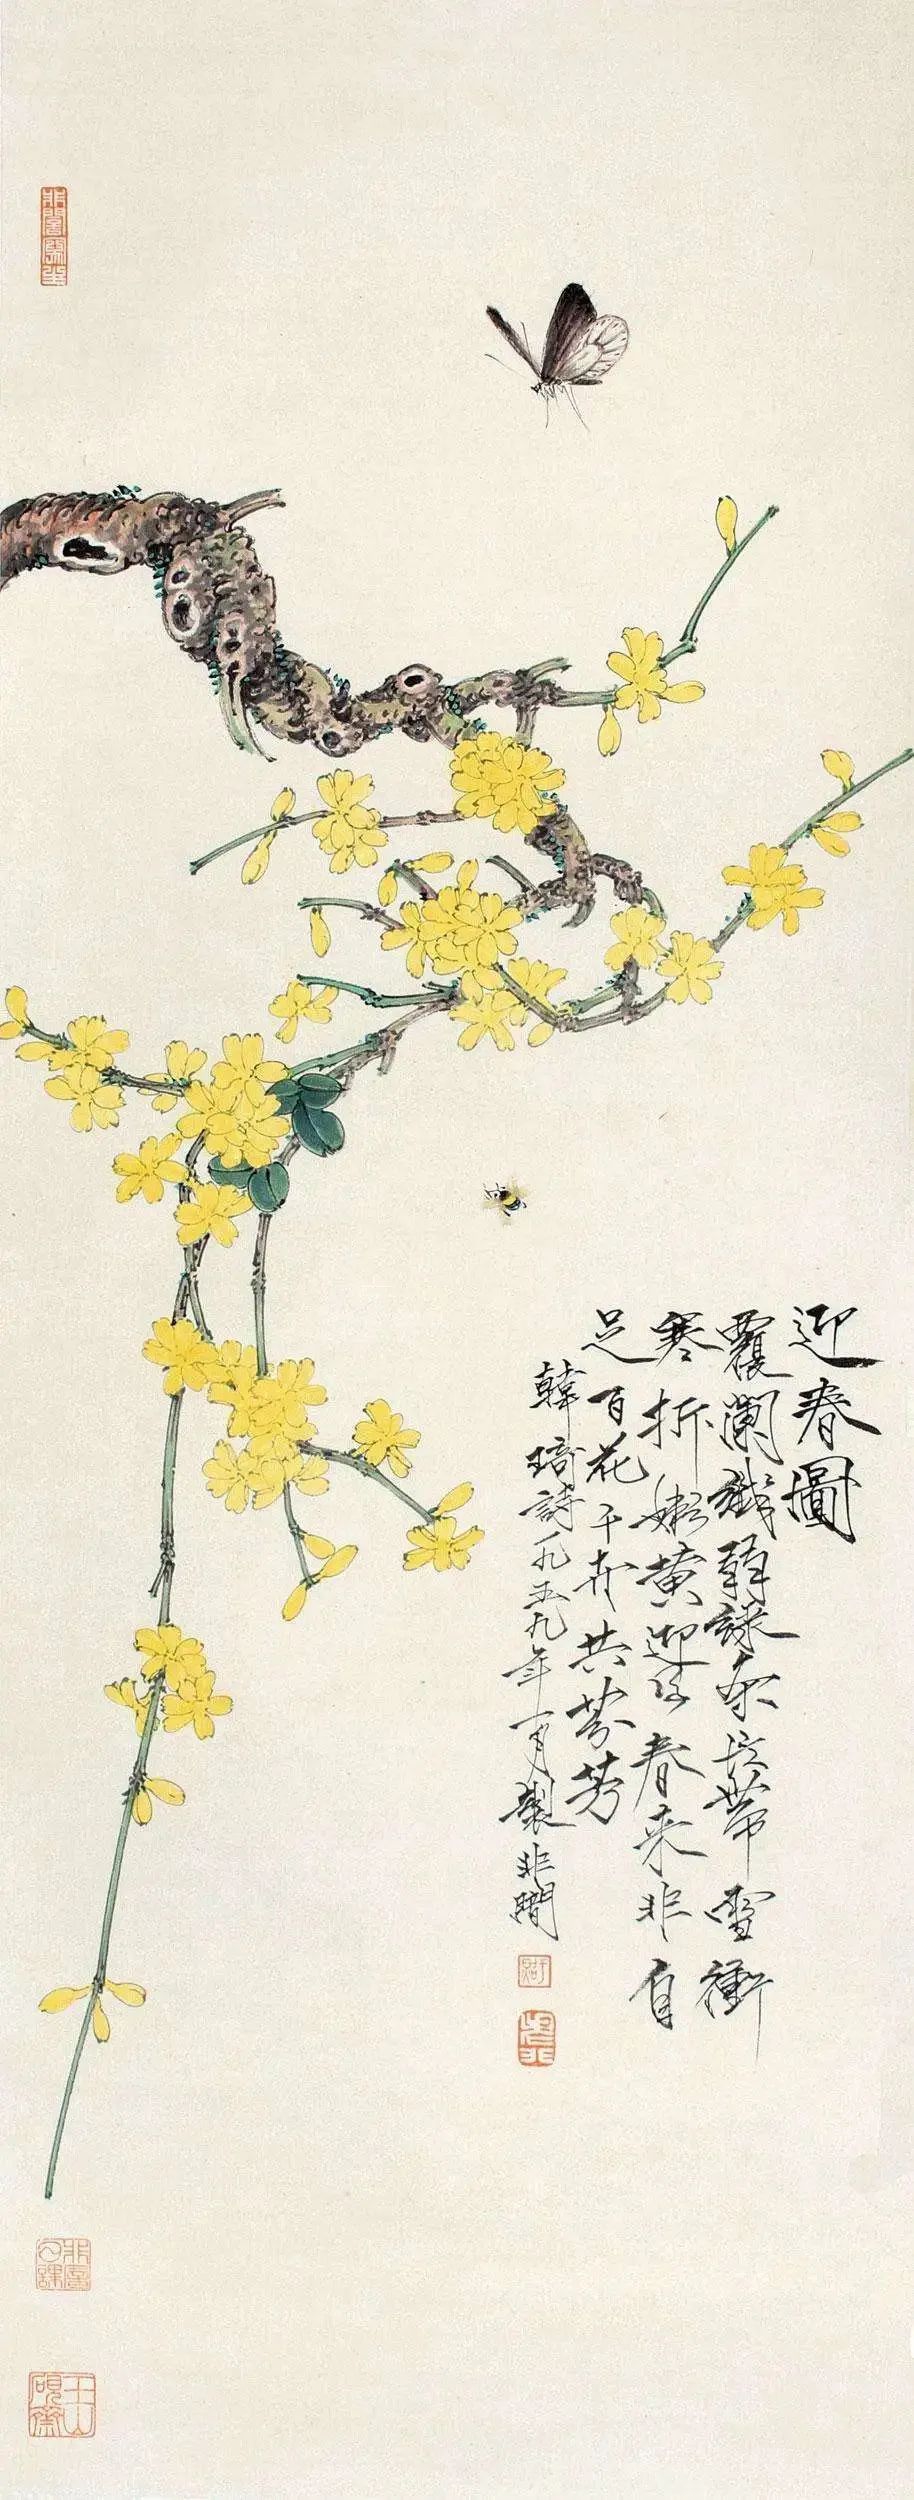 迎春圖
覆闌纖弱綠条長帶雪衝
寒拆嫩黃迎得春来非自
足百花千卉共芬芳
韓琦詩一九五九年一月製非闇
玉山硯齋